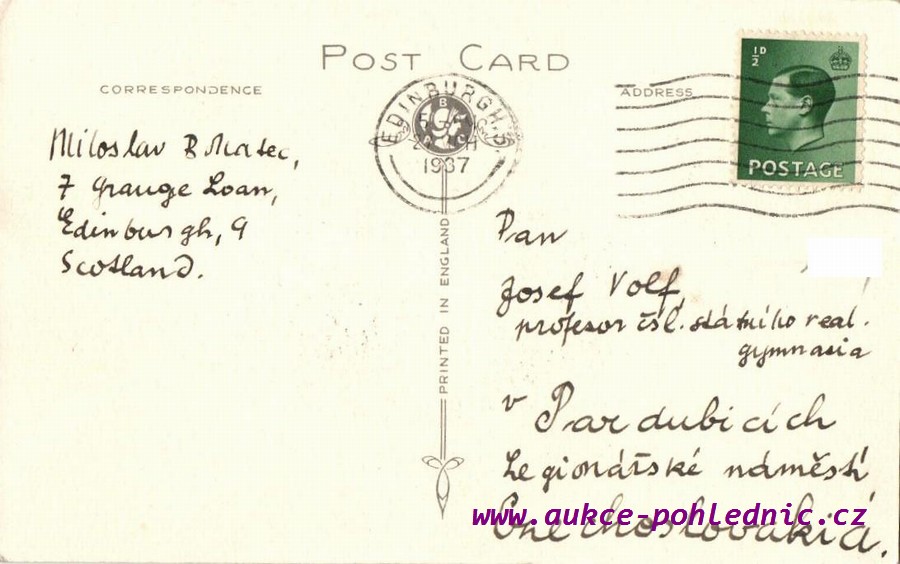 POST CARD
CORRESPONDENCE
ADDRESS
EDINBURGH
1937
½D
POSTAGE
Miloslav B
7 Grange Loan,
Edinburgh, 9
Scotland.
PRINTED IN ENGLAND
Pan
Josef Volf,
profesor čsl. státního real.
gymnasia
v Pardubicích
Legionářské náměstí
Czechoslovakia.
www.aukce-pohlednic.cz